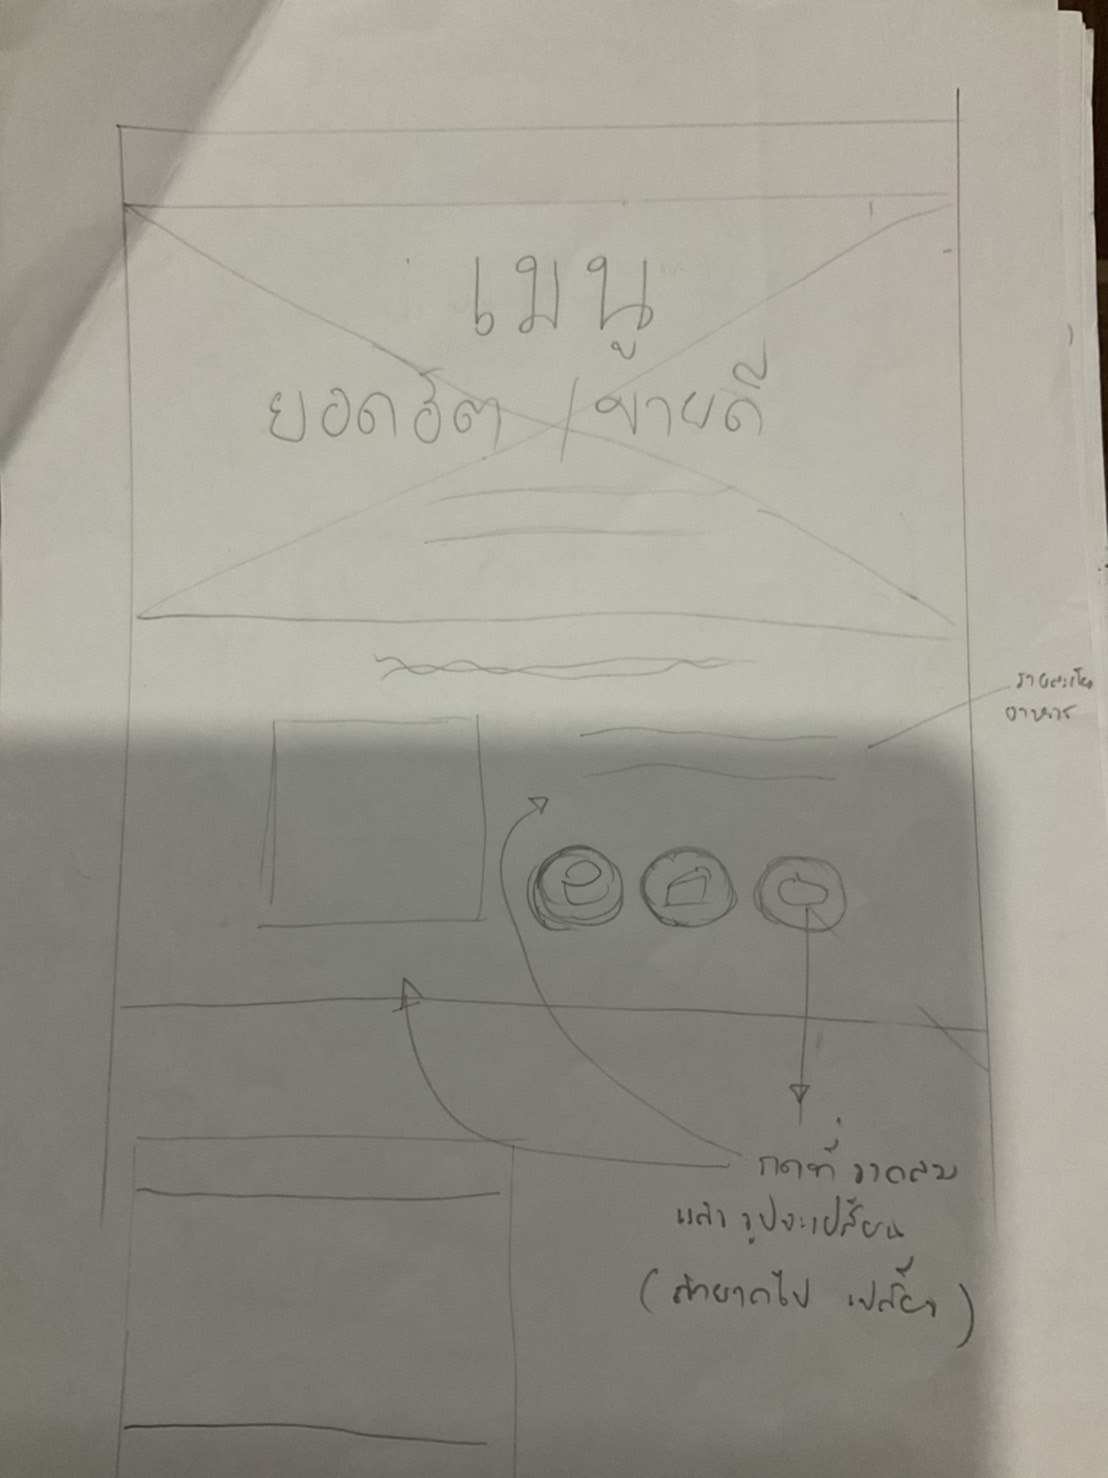 เมนู
ยอดฮิต / ขายดี
รายละเอียด
อาหาร
กดที่ วงกลม
แล้ว รูปจะเปลี่ยน
(ถ้ายากไป เปลี่ยน)